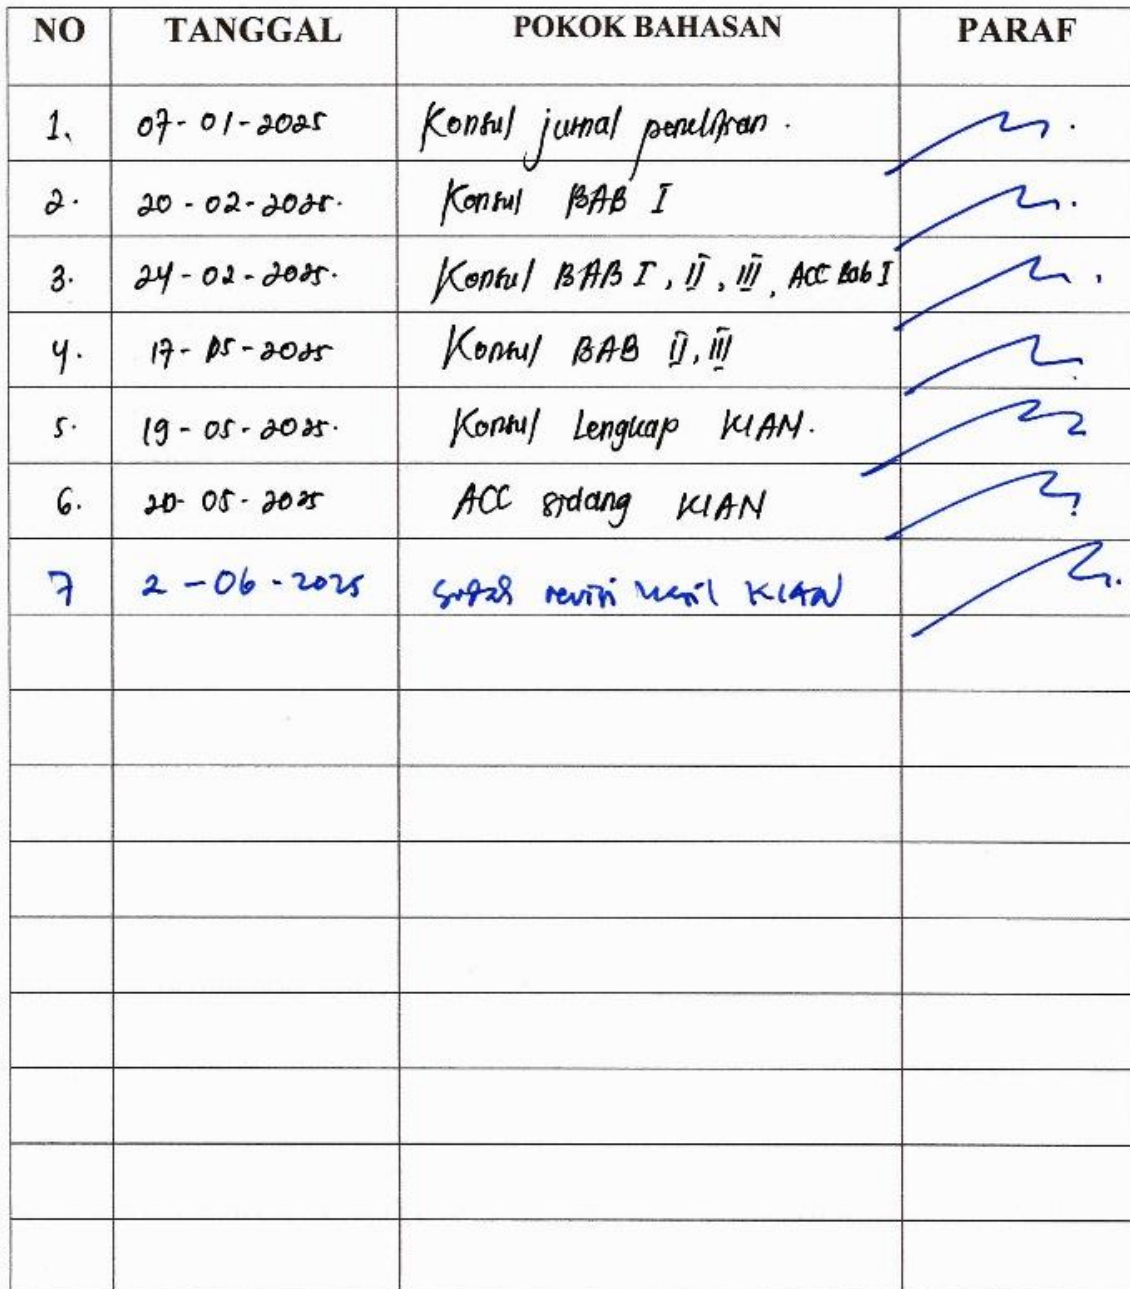 NO TANGGAL POKOK BAHASAN PARAF
1. 07-01-2025 Konsul jurnal penelitian.
2. 20-02-2025. Konsul BAB I
3. 24-02-2025. Konsul BAB I, II, III, ACC Bab I
4. 17-05-2025 Konsul BAB II, III
5. 19-05-2025. Konsul Lengkap KIAN.
6. 20-05-2025 ACC sidang KIAN
7 2-06-2025 revisi hasil KIAN